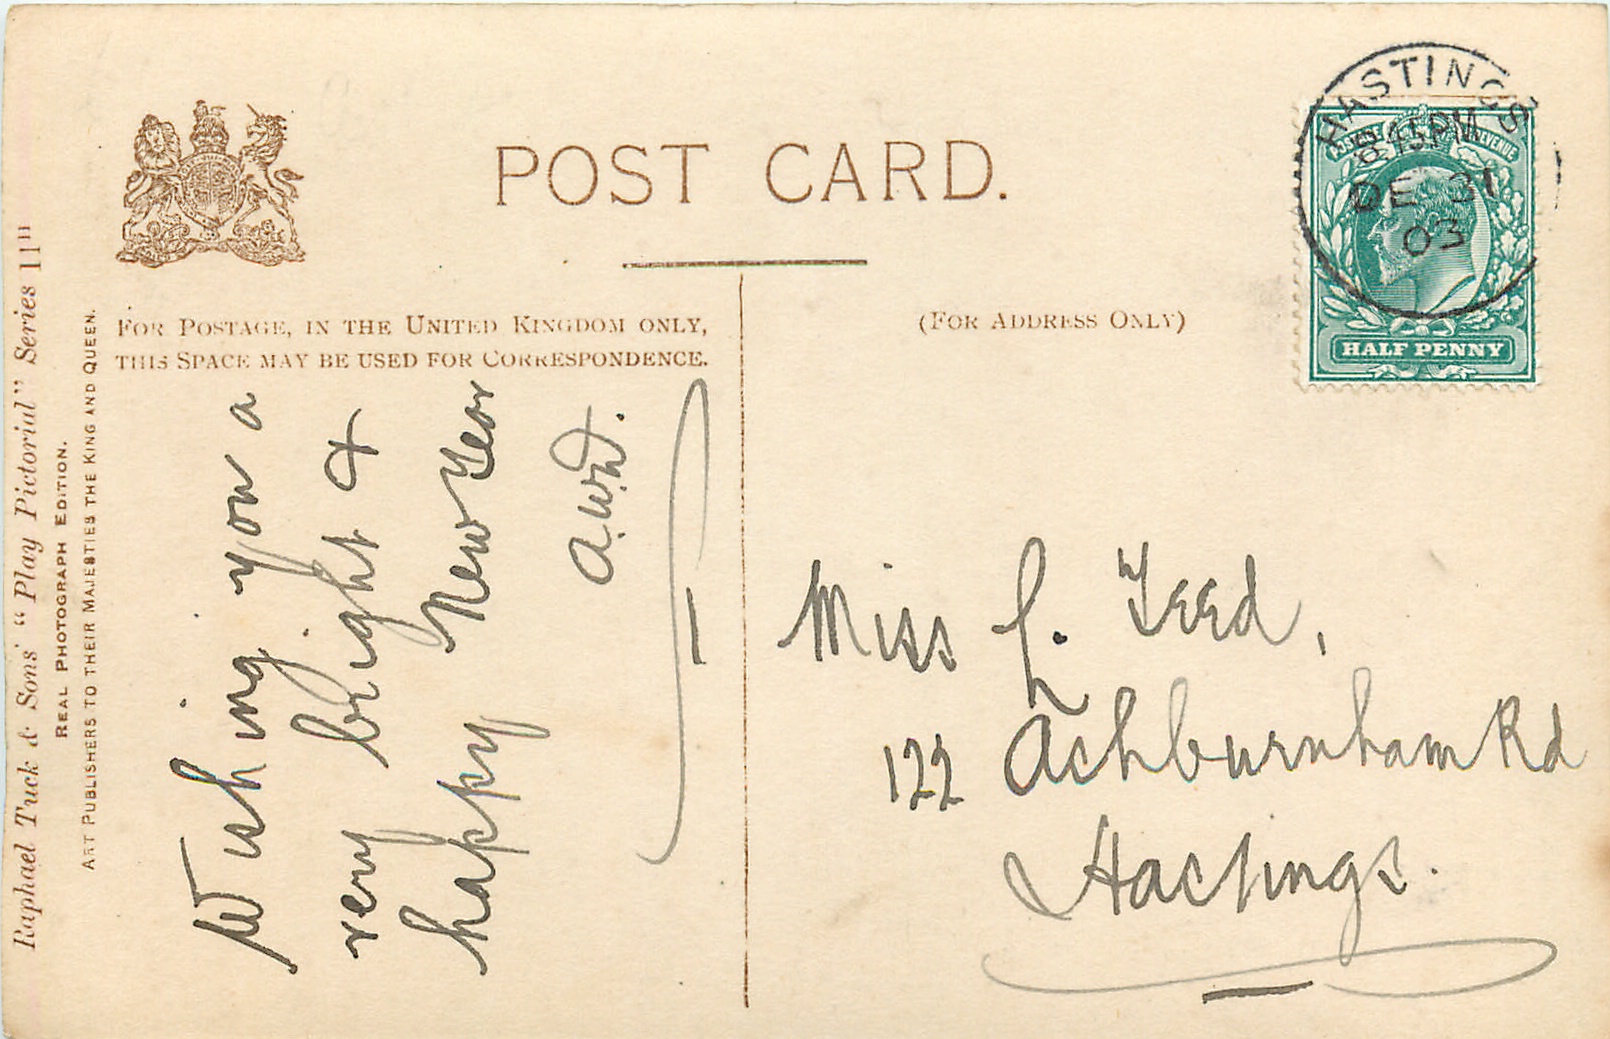 POST CARD.
FOR POSTAGE, IN THE UNITED KINGDOM ONLY,
THIS SPACE MAY BE USED FOR CORRESPONDENCE.
(FOR ADDRESS ONLY)
HASTINGS
8 15 PM
DE 31
03
POSTAGE REVENUE
HALF PENNY
Raphael Tuck & Sons' "Play Pictorial" Series 11"
REAL PHOTOGRAPH EDITION.
ART PUBLISHERS TO THEIR MAJESTIES THE KING AND QUEEN.
Wishing you a
very bright &
happy New Year
a.w.d.
Miss L. Teed,
122 Ashburnham Rd
Hastings.